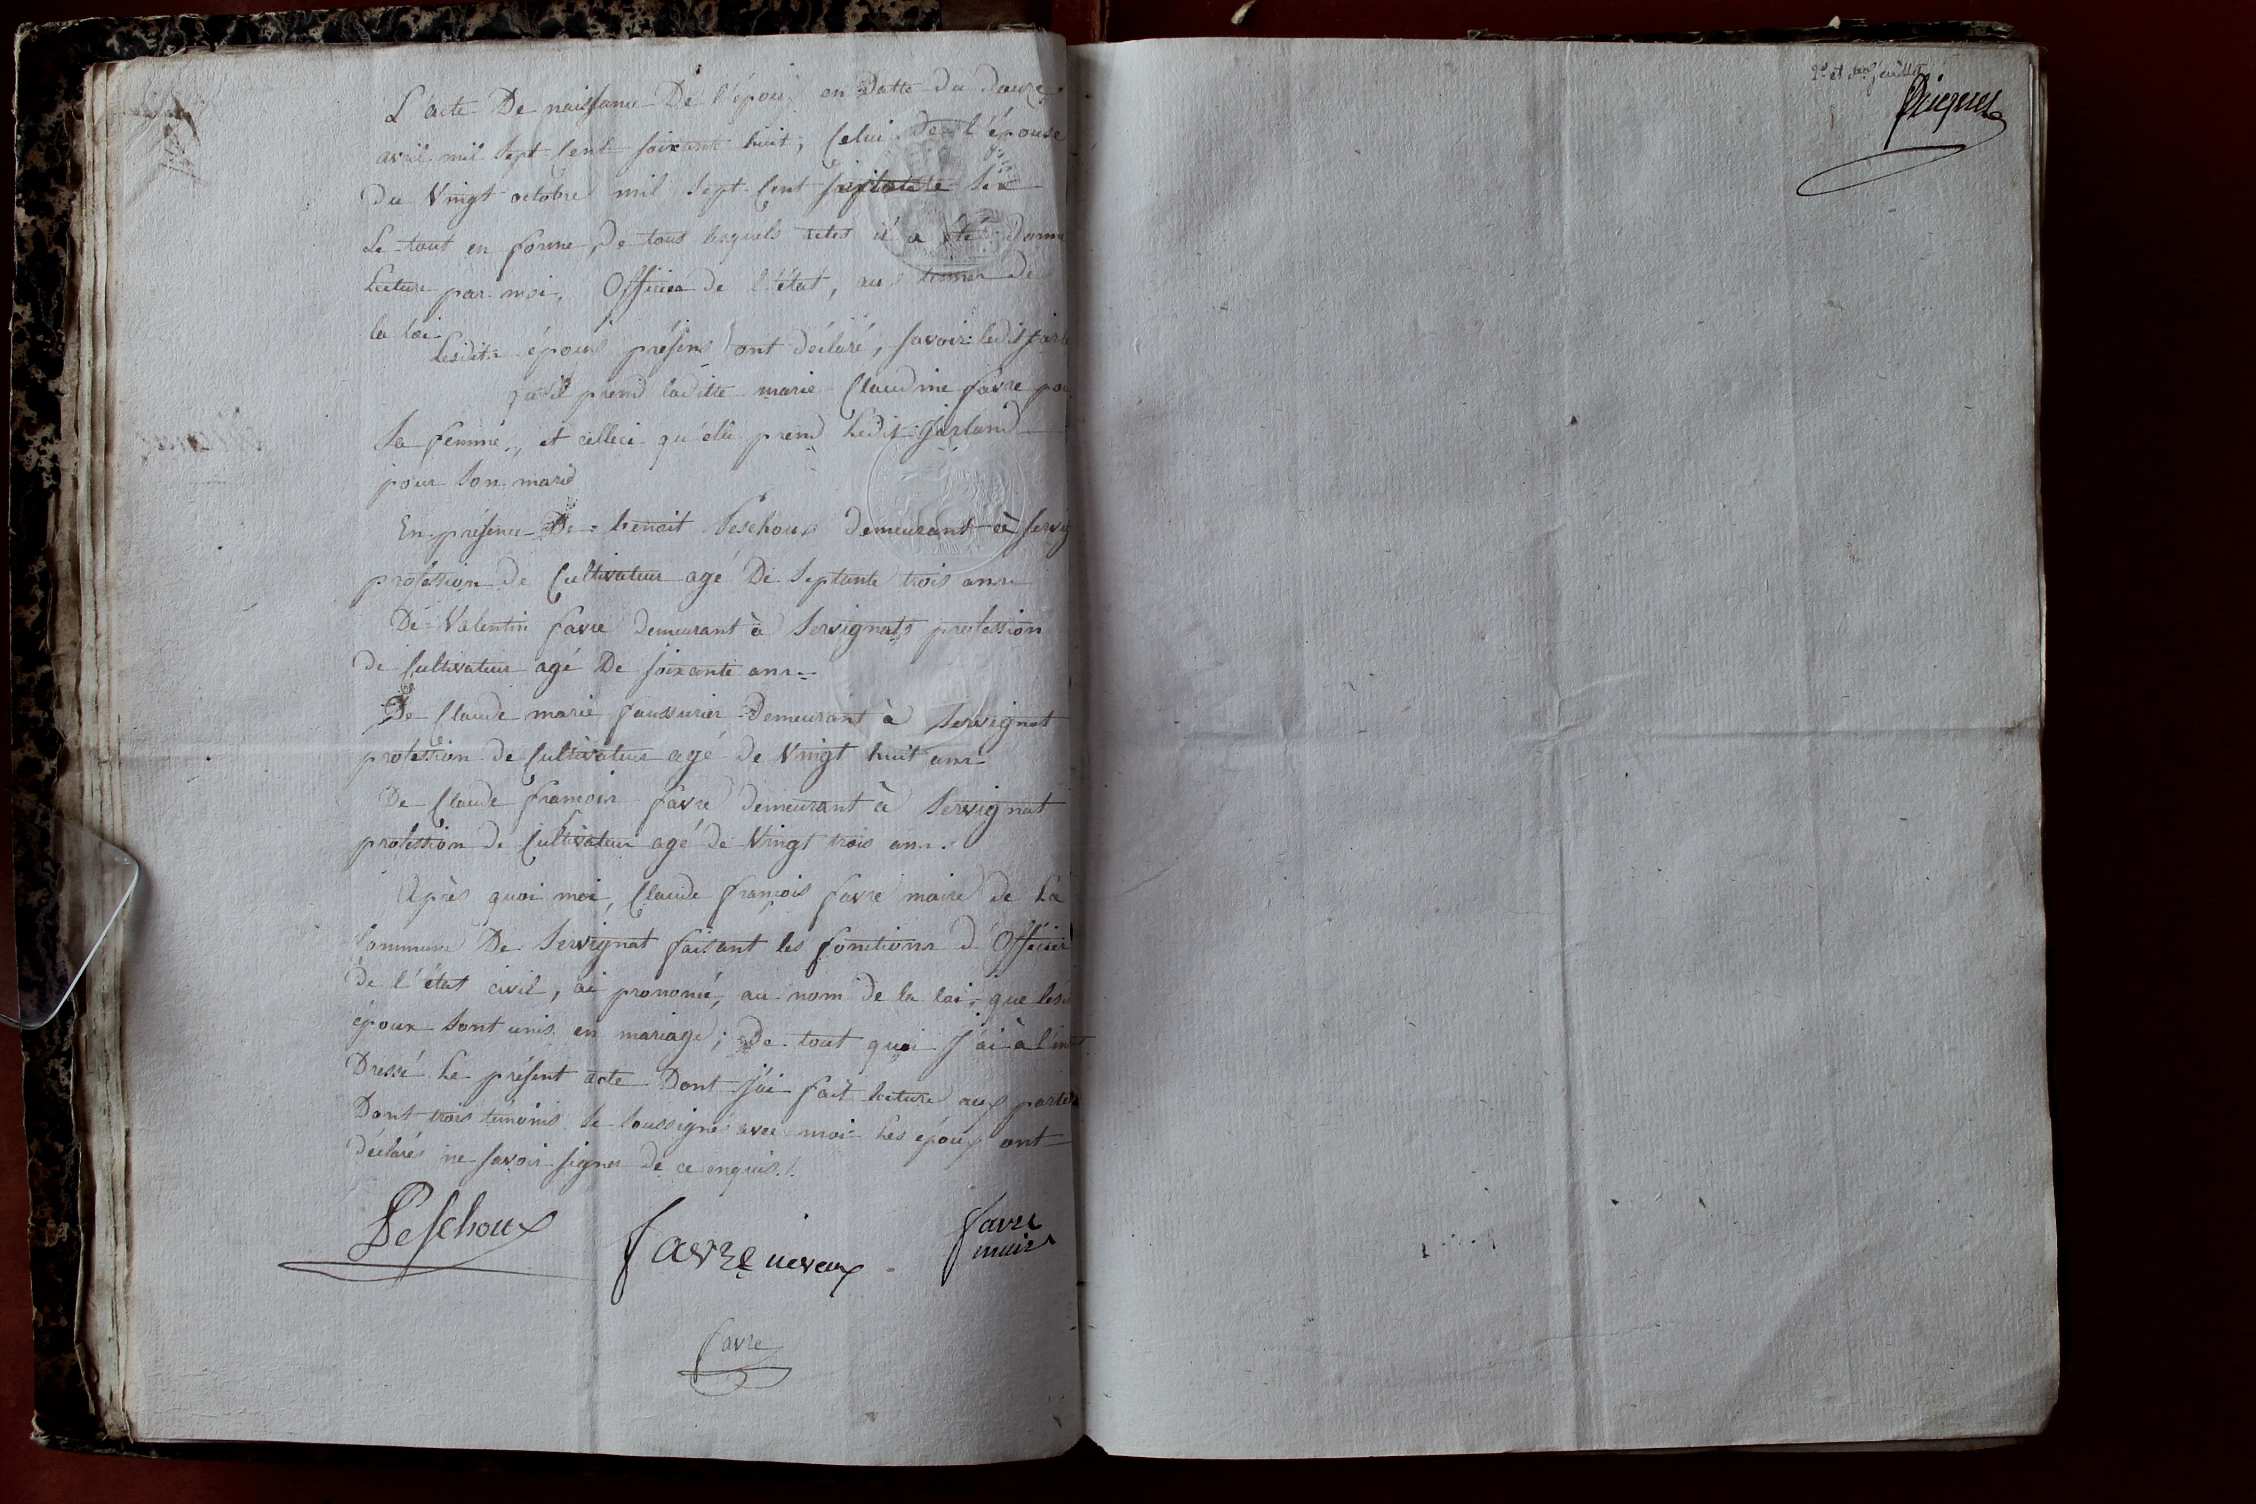 L'acte De naissance De l'époux en Datte du Douze
avril mil Sept Cent soixante huit, Celui De l'épouse
Du Vingt octobre mil Sept Cent Six
Le tout en forme, De tous lesquels actes il a été Donné
Lecture par moi, Officier de l'état, aux termes de
la loi
Lesdits époux présens ont déclaré, savoir ledit
qu'il prend laditte marie Claudine favre pour
Sa femme, et celleci qu'elle prend Ledit Jarland
pour Son marid
En présence De benoit Peschoux Demeurant à
profession de Cultivateur agé De Septante trois ans
De Valentin favre Demeurant à Servignats profession
de Cultivateur agé De soixante ans
De Claude marie Demeurant à Servignat
profession de Cultivateur agé de Vingt huit ans
De Claude francois favre demeurant à Servignat
profession de Cultivateur agé de Vingt trois ans.
Après quoi moi, Claude françois favre maire de La
Commune De Servignat faisant les fonctions d'Officier
De l'état civil, ai prononcé, au nom de la loi, que
époux Sont unis en mariage; De tout quoi j'ai à
Dressé Le présent acte Dont j'ai fait lecture aux parties
Dont trois temoins Se Soussigné avec moi Les époux ont
déclarés ne savoir signer de ce enquis.
Peschoux
favre neveux
favre
maire
favre
2e et feuillet